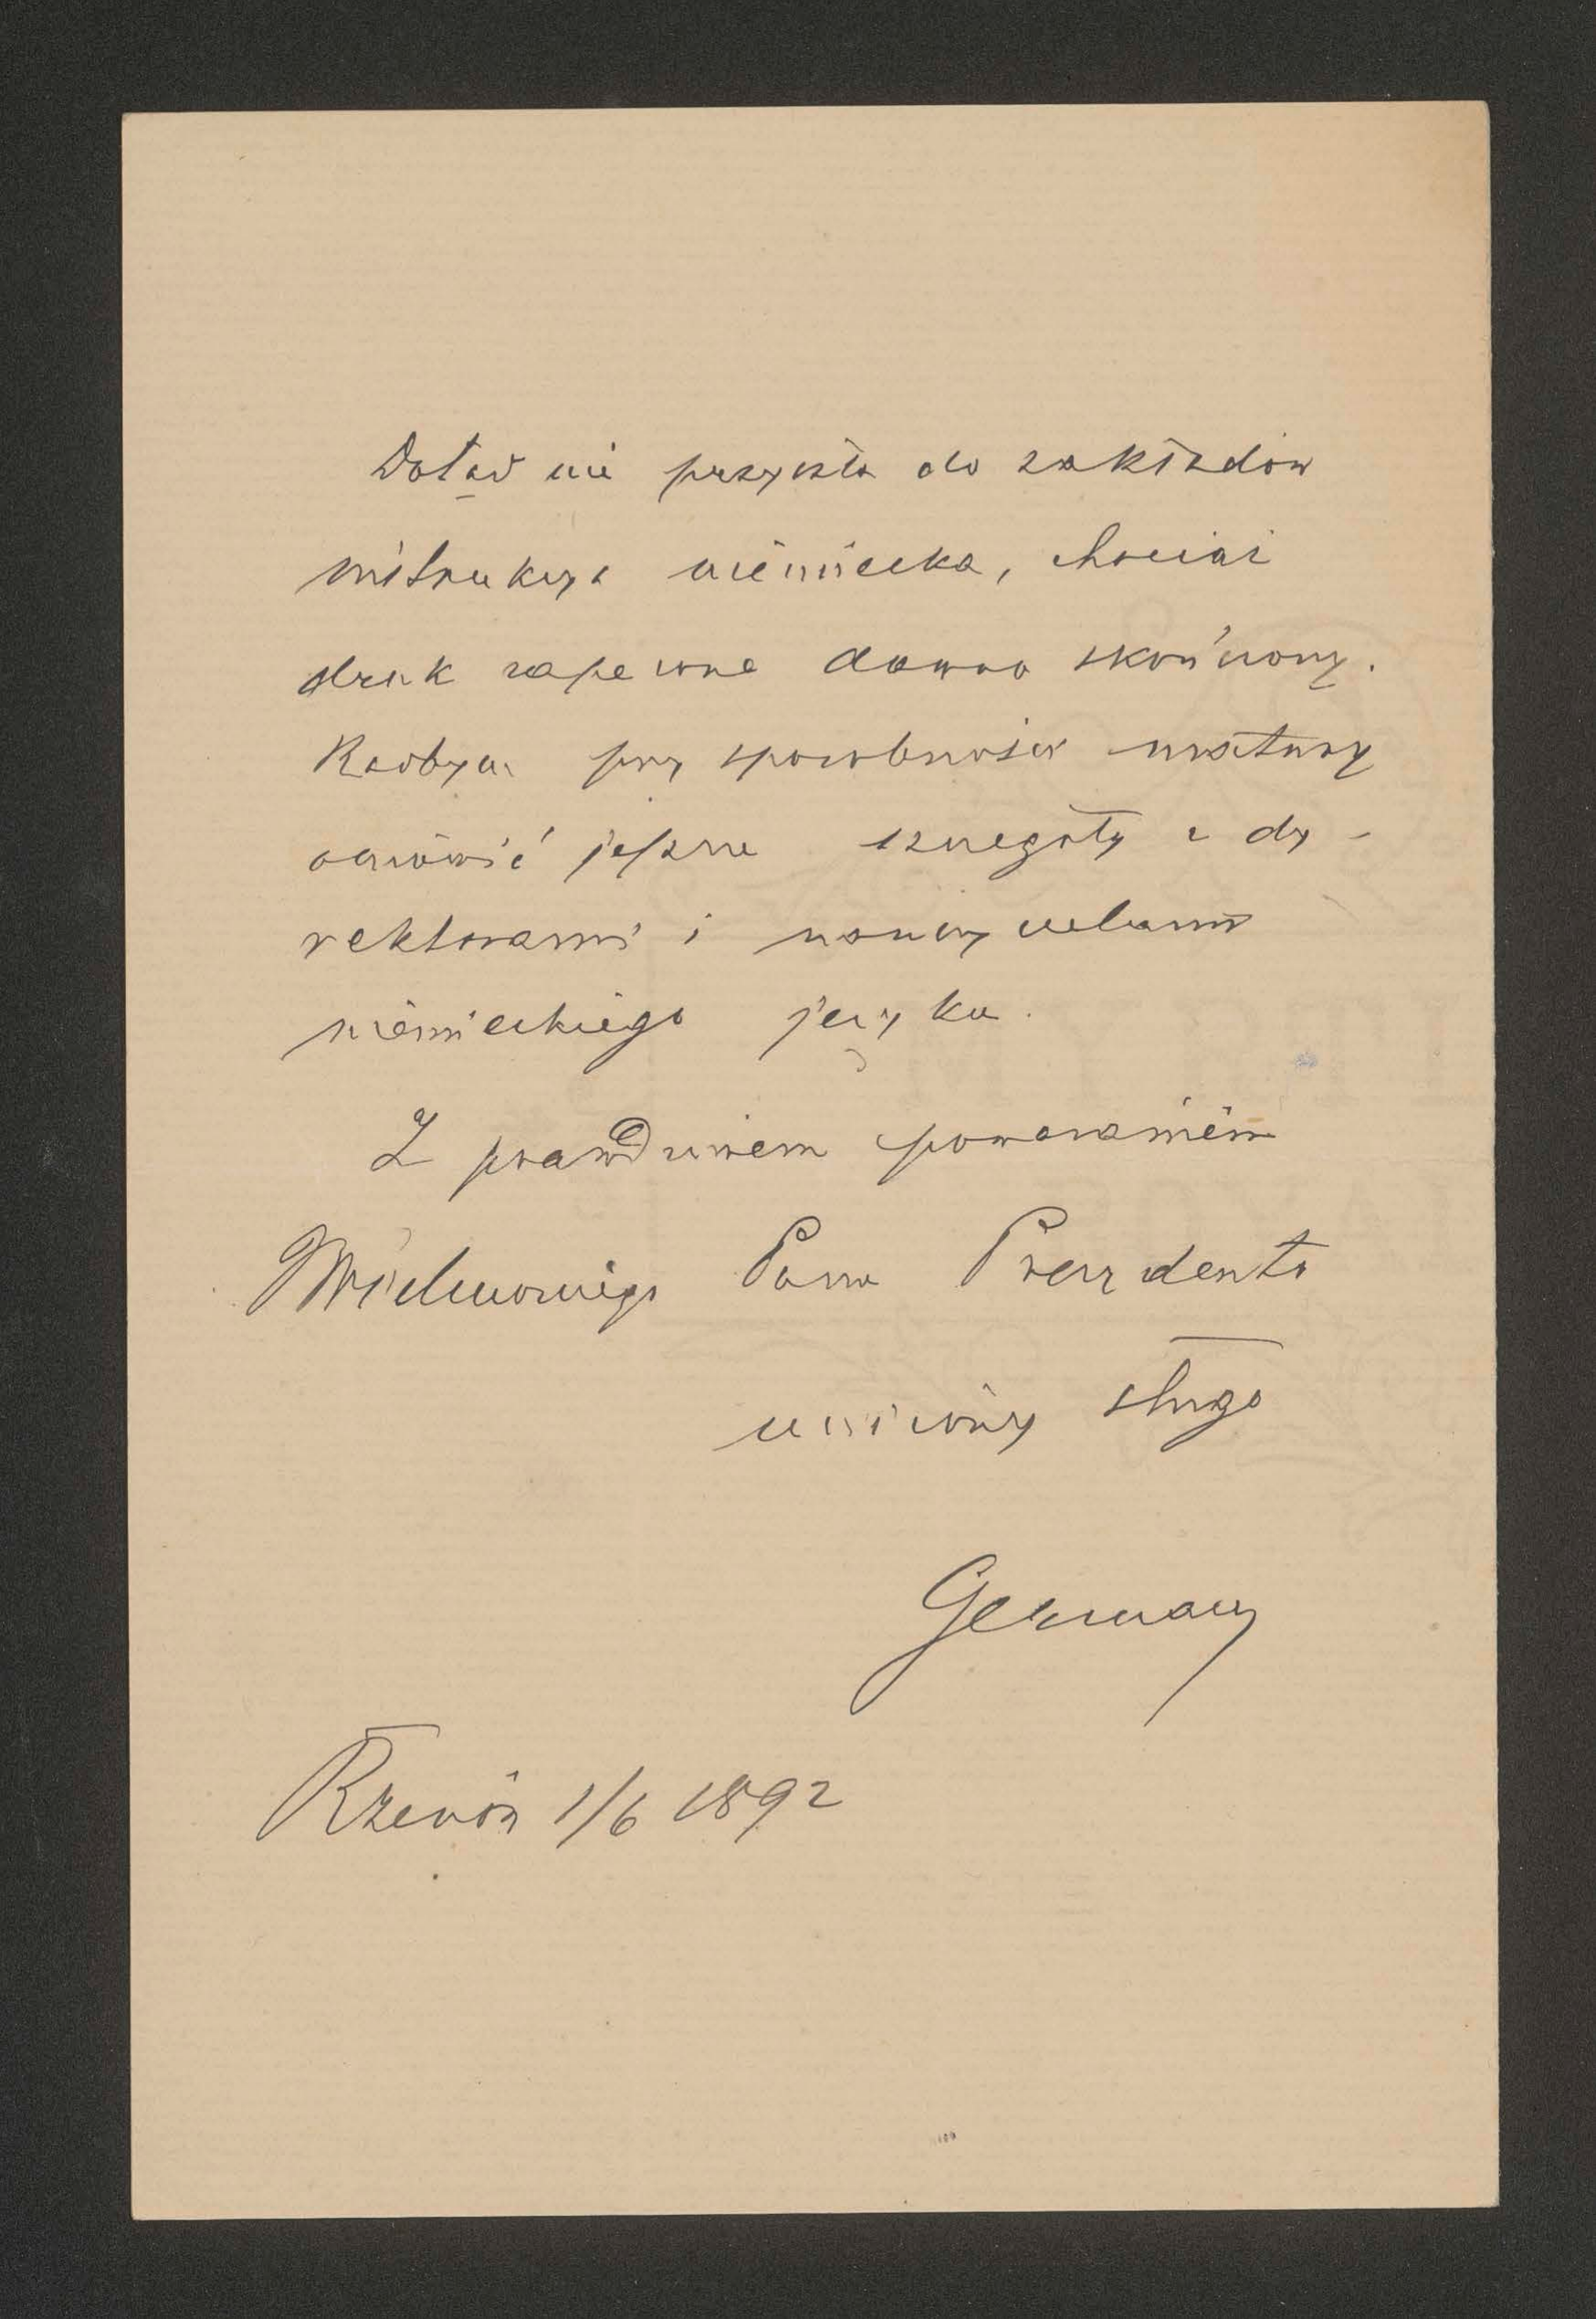 Dotąd nie przyszła do zakładów
instrukcya niemiecka, chociaż
druk zapewne dawno skończony.
Radbym przy sposobności matury
omówić jeszcze szczegóły z dy-
rektorami i nauczycielami
niemieckiego języka.
Z prawdziwem poważaniem
Wielmożnego Pana Prezydenta
uniżony sługa
German
Rzeszów 1/6 1892